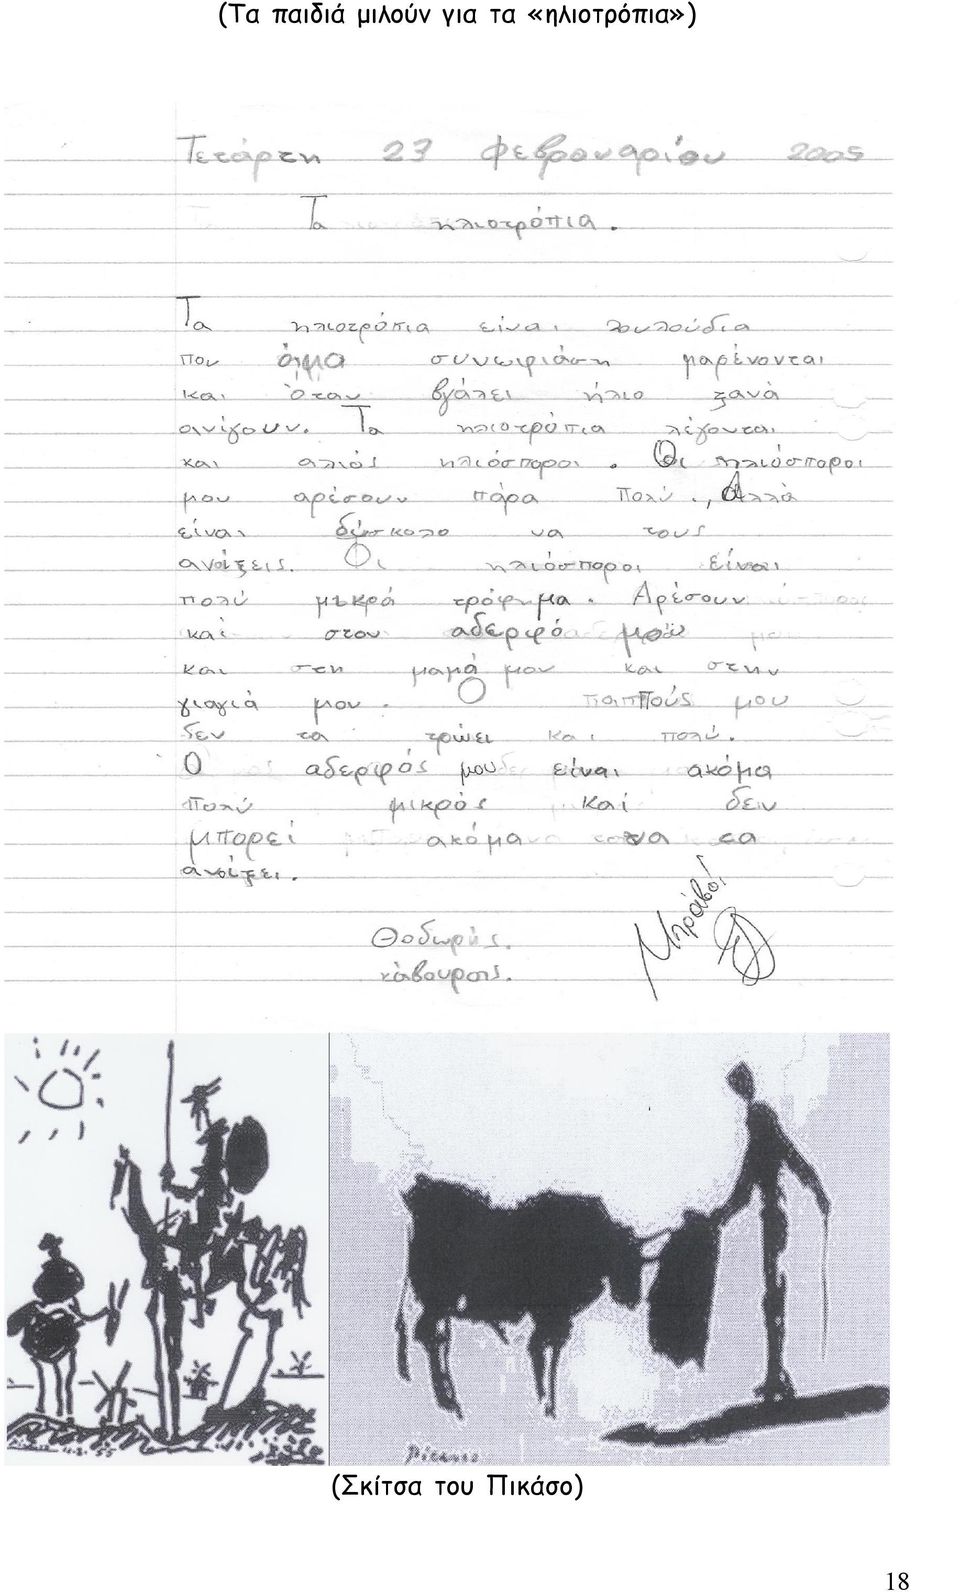 (Τα παιδιά μιλούν για τα «ηλιοτρόπια»)
Τετάρτη 23 Φεβρουαρίου 2005
Τα ηλιοτρόπια.
Τα ηλιοτρόπια είναι λουλούδια
που άμα συνωφιάση μαρένονται
και όταν βγάλει ήλιο ξανά
ανίγουν. Τα ηλιοτρόπια λέγονται
και αλιός ηλιόσποροι. Οι ηλιόσποροι
μου αρέσουν πάρα πολύ., Αλλά
είναι δύσκολο να τους
ανοίξεις. Οι ηλιόσποροι είναι
πολύ μικρά τρόφιμα. Αρέσουν
και στον αδερφό μου
και στη μαμά μου και στην
γιαγιά μου. Ο παππούς μου
δεν τα τρώει και πολύ.
Ο αδερφός μου είναι ακόμα
πολύ μικρός και δεν
μπορεί ακόμα να τα
ανοίξει.
Θοδωρής.
κάβουρας.
Μπράβο!
Picasso
(Σκίτσα του Πικάσο)
18